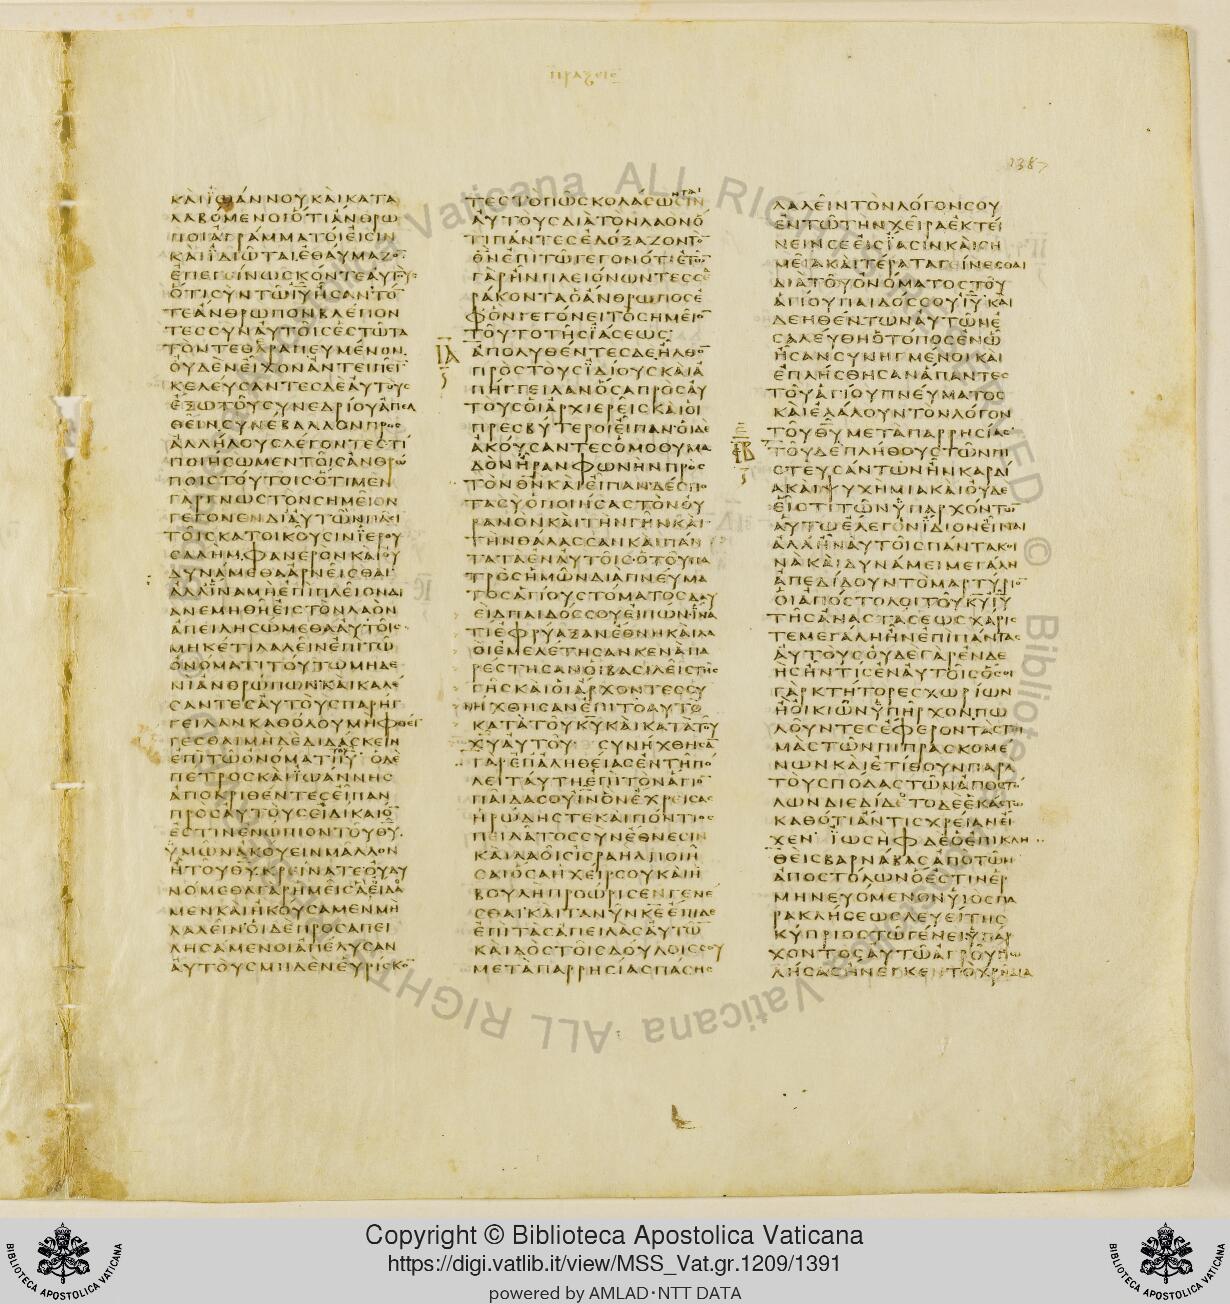 πραξεις
1387
ΚΑΙΪΩΑΝΝΟΥΚΑΙΚΑΤΑ
ΛΑΒΟΜΕΝΟΙΟΤΙΑΝΘΡΩ
ΠΟΙΑΓΡΑΜΜΑΤΟΙΕΙCΙΝ
ΚΑΙΪΔΙΩΤΑΙΕΘΑΥΜΑΖΟ
ΕΠΕΓΕΙΝΩCΚΟΝΤΕΑΥΤΥC
ΟΤΙCΥΝΤΩΙΥΗCΑΝΤΟ
ΤΕΑΝΘΡΩΠΟΝΒΛΕΠΟΝ
ΤΕCCΥΝΑΥΤΟΙCΕCΤΩΤΑ
ΤΟΝΤΕΘΑΡΑΠΕΥΜΕΝΟΝ
ΟΥΔΕΝΕΙΧΟΝΑΝΤΕΙΠΕΙ
ΚΕΛΕΥCΑΝΤΕCΔΕΑΥΤΟΥC
ΕΞΩΤΟΥCΥΝΕΔΡΙΟΥΑΠΕΛ
ΘΕΙΝCΥΝΕΒΑΛΛΟΝΠΡΟC
ΑΛΛΗΛΟΥCΛΕΓΟΝΤΕCΤΙ
ΠΟΙΗCΩΜΕΝΤΟΙCΑΝΘΡΩ
ΠΟΙCΤΟΥΤΟΙCΟΤΙΜΕΝ
ΓΑΡΓΝΩCΤΟΝCΗΜΕΙΟΝ
ΓΕΓΟΝΕΝΔΙΑΥΤΩΝΠΑCΙ
ΤΟΙCΚΑΤΟΙΚΟΥCΙΝΪΕΡΟΥ
CΑΛΗΜΦΑΝΕΡΟΝΚΑΙΟΥ
ΔΥΝΑΜΕΘΑΑΡΝΕΙCΘΑΙ
ΑΛΛΙΝΑΜΗΕΠΙΠΛΕΙΟΝΔΙ
ΑΝΕΜΗΘΗΕΙCΤΟΝΛΑΟΝ
ΑΠΕΙΛΗCΩΜΕΘΑΑΥΤΟΙC
ΜΗΚΕΤΙΛΑΛΕΙΝΕΠΙΤΩ
ΟΝΟΜΑΤΙΤΟΥΤΩΜΗΔΕ
ΝΙΑΝΘΡΩΠΩΝΚΑΙΚΑΛΕ
CΑΝΤΕCΑΥΤΟΥCΠΑΡΗΓ
ΓΕΙΛΑΝΚΑΘΟΛΟΥΜΗΦΘΕΓ
ΓΕCΘΑΙΜΗΔΕΔΙΔΑCΚΕΙΝ
ΕΠΙΤΩΟΝΟΜΑΤΙΙΥ ΟΔΕ
ΠΕΤΡΟCΚΑΙΪΩΑΝΝΗC
ΑΠΟΚΡΙΘΕΝΤΕCΕΙΠΑΝ
ΠΡΟCΑΥΤΟΥCΕΙΔΙΚΑΙΟ
ΕCΤΙΝΕΝΩΠΙΟΝΤΟΥΘΥ
ΫΜΩΝΑΚΟΥΕΙΝΜΑΛΛΟΝ
ΗΤΟΥΘΥΚΡΕΙΝΑΤΕΟΥΔΥ
ΝΟΜΕΘΑΓΑΡΗΜΕΙCΑΕΙΔΑ
ΜΕΝΚΑΙΗΚΟΥCΑΜΕΝΜΗ
ΛΑΛΕΙΝΟΙΔΕΠΡΟCΑΠΕΙ
ΛΗCΑΜΕΝΟΙΑΠΕΛΥCΑΝ
ΑΥΤΟΥCΜΗΔΕΝΕΥΡΙCΚΟ
ΤΕCΤΟΠΩCΚΟΛΑCΩCΙΝ
ΑΥΤΟΥCΔΙΑΤΟΝΛΑΟΝΟ
ΤΙΠΑΝΤΕCΕΔΟΞΑΖΟΝΤΟ
ΘΝΕΠΙΤΩΓΕΓΟΝΟΤΙΕΤΩ
ΓΑΡΗΝΠΛΕΙΟΝΩΝΤΕCCΕ
ΡΑΚΟΝΤΑΟΑΝΘΡΩΠΟCΕ
ΦΟΝΓΕΓΟΝΕΙΤΟCΗΜΕΙΟ
ΤΟΥΤΟΤΗCΪΑCΕΩC
ΙΑ
ΑΠΟΛΥΘΕΝΤΕCΔΕΗΛΘΟ
ΠΡΟCΤΟΥCΪΔΙΟΥCΚΑΙΑ
ΠΗΓΓΕΙΛΑΝΟCΑΠΡΟCΑΥ
ΤΟΥCΟΙΑΡΧΙΕΡΕΙCΚΑΙΟΙ
ΠΡΕCΒΥΤΕΡΟΙΕΙΠΑΝΟΙΔΕ
ΑΚΟΥCΑΝΤΕCΟΜΟΘΥΜΑ
ΔΟΝΗΡΑΝΦΩΝΗΝΠΡΟC
ΤΟΝΘΝΚΑΙΕΙΠΑΝΔΕCΠΟ
ΤΑCΥΟΠΟΙΗCΑCΤΟΝΟΥ
ΡΑΝΟΝΚΑΙΤΗΝΓΗΝΚΑΙ
ΤΗΝΘΑΛΑCCΑΝΚΑΙΠΑΝ
ΤΑΤΑΕΝΑΥΤΟΙCΟΤΟΥΠΑ
ΤΡΟCΗΜΩΝΔΙΑΠΝΕΥΜΑ
ΤΟCΑΓΙΟΥCΤΟΜΑΤΟCΔΑΥ
ΕΙΔΠΑΙΔΟCCΟΥΕΙΠΩΝΪΝΑ
ΤΙΕΦΡΥΑΞΑΝΕΘΝΗΚΑΙΛΑ
ΟΙΕΜΕΛΕΤΗCΑΝΚΕΝΑΠΑ
ΡΕCΤΗCΑΝΟΙΒΑCΙΛΕΙCΤΗC
ΓΗCΚΑΙΟΙΑΡΧΟΝΤΕCCΥ
ΝΗΧΘΗCΑΝΕΠΙΤΟΑΥΤΟ
ΚΑΤΑΤΟΥΚΥΚΑΙΚΑΤΑΤΟΥ
ΧΥΑΥΤΟΥ CΥΝΗΧΘΗCΑ
ΓΑΡΕΠΑΛΗΘΕΙΑCΕΝΤΗΠΟ
ΛΕΙΤΑΥΤΗΕΠΙΤΟΝΑΓΙΟ
ΠΑΙΔΑCΟΥΙΝΟΝΕΧΡΕΙCΑC
ΗΡΩΔΗCΤΕΚΑΙΠΟΝΤΙΟC
ΠΕΙΛΑΤΟCCΥΝΕΘΝΕCΙΝ
ΚΑΙΛΑΟΙCΙCΡΑΗΛΠΟΙΗ
CΑΙΟCΑΗΧΕΙΡCΟΥΚΑΙΗ
ΒΟΥΛΗΠΡΟΩΡΙCΕΝΓΕΝΕ
CΘΑΙΚΑΙΤΑΝΥΝΚΕΕΠΙΔΕ
ΕΠΙΤΑCΑΠΕΙΛΑCΑΥΤΩ
ΚΑΙΔΟCΤΟΙCΔΟΥΛΟΙCCΟΥ
ΜΕΤΑΠΑΡΡΗCΙΑCΠΑCΗC
ΛΑΛΕΙΝΤΟΝΛΟΓΟΝCΟΥ
ΕΝΤΩΤΗΝΧΕΙΡΑΕΚΤΕΙ
ΝΕΙΝCΕΕΙCΪΑCΙΝΚΑΙCΗ
ΜΕΙΑΚΑΙΤΕΡΑΤΑΓΕΙΝΕCΘΑΙ
ΔΙΑΤΟΥΟΝΟΜΑΤΟCΤΟΥ
ΑΓΙΟΥΠΑΙΔΟCCΟΥΙΥΚΑΙ
ΔΕΗΘΕΝΤΩΝΑΥΤΩΝΕ
CΑΛΕΥΘΗΟΤΟΠΟCΕΝΩ
ΗCΑΝCΥΝΗΓΜΕΝΟΙΚΑΙ
ΕΠΛΗCΘΗCΑΝΑΠΑΝΤΕC
ΤΟΥΑΓΙΟΥΠΝΕΥΜΑΤΟC
ΚΑΙΕΛΑΛΟΥΝΤΟΝΛΟΓΟΝ
ΤΟΥΘΥΜΕΤΑΠΑΡΡΗCΙΑC
ΙΒ
ΤΟΥΔΕΠΛΗΘΟΥCΤΩΝΠΙ
CΤΕΥCΑΝΤΩΝΗΝΚΑΡΔΙ
ΑΚΑΙΨΥΧΗΜΙΑΚΑΙΟΥΔΕ
ΕΙCΤΙΤΩΝΫΠΑΡΧΟΝΤΩ
ΑΥΤΩΕΛΕΓΟΝΪΔΙΟΝΕΙΝΑΙ
ΑΛΛΗΝΑΥΤΟΙCΠΑΝΤΑΚΟΙ
ΝΑΚΑΙΔΥΝΑΜΕΙΜΕΓΑΛΗ
ΑΠΕΔΙΔΟΥΝΤΟΜΑΡΤΥΡΙΟ
ΟΙΑΠΟCΤΟΛΟΙΤΟΥΚΥΙΥ
ΤΗCΑΝΑCΤΑCΕΩCΧΑΡΙC
ΤΕΜΕΓΑΛΗΗΝΕΠΙΠΑΝΤΑC
ΑΥΤΟΥCΟΥΔΕΓΑΡΕΝΔΕ
ΗCΗΝΤΙCΕΝΑΥΤΟΙCΟCΟΙ
ΓΑΡΚΤΗΤΟΡΕCΧΩΡΙΩΝ
ΗΟΙΚΙΩΝΫΠΗΡΧΟΝΠΩ
ΛΟΥΝΤΕCΕΦΕΡΟΝΤΑCΤΙ
ΜΑCΤΩΝΠΙΠΡΑCΚΟΜΕ
ΝΩΝΚΑΙΕΤΙΘΟΥΝΠΑΡΑ
ΤΟΥCΠΟΔΑCΤΩΝΑΠΟCΤΟ
ΛΩΝΔΙΕΔΙΔΕΤΟΔΕΕΚΑCΤΩ
ΚΑΘΟΤΙΑΝΤΙCΧΡΕΙΑΝΕΙ
ΧΕΝ ΪΩCΗΦΔΕΟΕΠΙΚΛΗ
ΘΕΙCΒΑΡΝΑΒΑCΑΠΟΤΩΝ
ΑΠΟCΤΟΛΩΝΟΕCΤΙΝΕΡ
ΜΗΝΕΥΟΜΕΝΟΝΥΙΟCΠΑ
ΡΑΚΛΗCΕΩCΛΕΥΕΙΤΗC
ΚΥΠΡΙΟCΤΩΓΕΝΕΙΫΠΑΡ
ΧΟΝΤΟCΑΥΤΩΑΓΡΟΥΠΩ
ΛΗCΑCΗΝΕΓΚΕΝΤΟΧΡΗΜΑ
Copyright © Biblioteca Apostolica Vaticana
https://digi.vatlib.it/view/MSS_Vat.gr.1209/1391
powered by AMLAD·NTT DATA